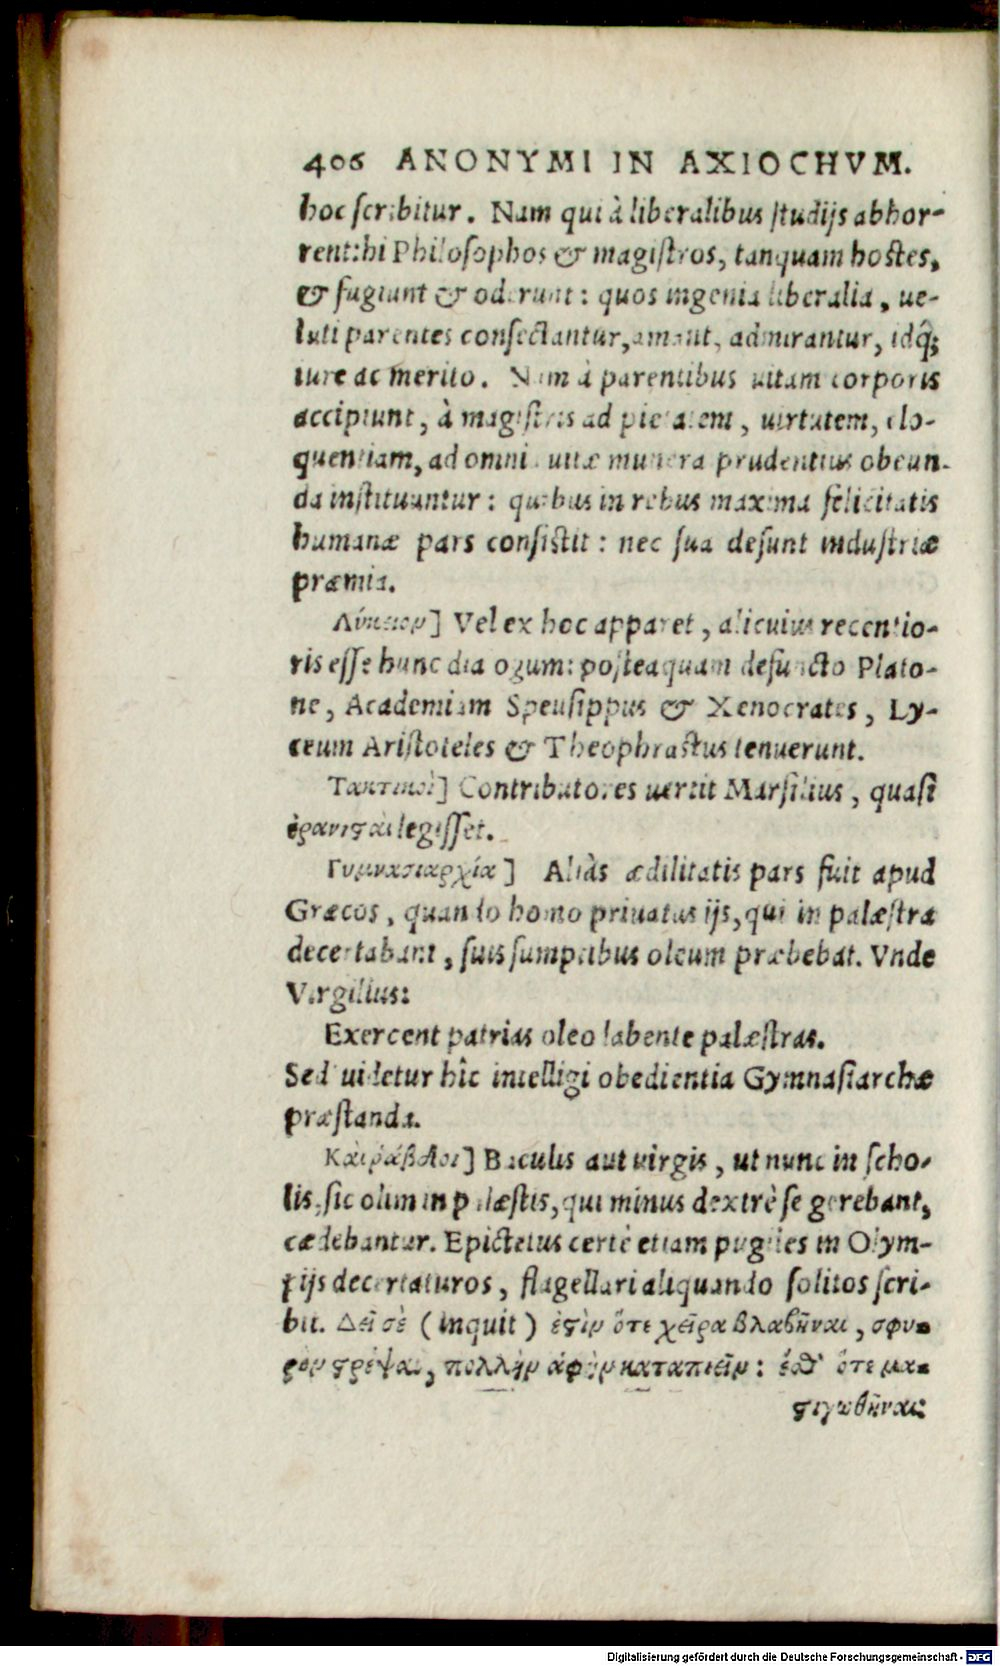 406 ANONYMI IN AXIOCHVM.
hoc scribitur. Nam qui à liberalibus studijs abhor-
rent: hi Philosophos & magistros, tanquam hostes,
& fugiunt & oderunt: quos ingenia liberalia, ue-
luti parentes consectantur, amant, admirantur, idq́;
iure ac merito. Nam à parentibus uitam corporis
accipiunt, à magistris ad pietatem, uirtutem, elo-
quentiam, ad omnia uitæ munera prudentius obeun-
da instituuntur: quibus in rebus maxima felicitatis
humanæ pars consistit: nec sua desunt industriæ
præmia.
Λύκειον] Vel ex hoc apparet, alicuius recentio-
ris esse hunc dialogum: posteaquam defuncto Plato-
ne, Academiam Speusippus & Xenocrates, Ly-
ceum Aristoteles & Theophrastus tenuerunt.
Τακτικοὶ] Contributores uertit Marsilius, quasi
ἐρανισαὶ legisset.
Γυμνασιαρχία] Aliàs ædilitatis pars fuit apud
Græcos, quando homo priuatus ijs, qui in palæstra
decertabant, suis sumptibus oleum præbebat. Vnde
Virgilius:
Exercent patrias oleo labente palæstras.
Sed uidetur hîc intelligi obedientia Gymnasiarchæ
præstanda.
Καὶ ῥάβδοι] Baculis aut uirgis, ut nunc in scho-
lis, sic olim in palæstis, qui minus dextrè se gerebant,
cædebantur. Epictetus certè etiam pugiles in Olym-
pijs decertaturos, flagellari aliquando solitos scri-
bit. Δεῖ σὲ (inquit) ἐϛὶν ὅτε χεῖρα βλαβῆναι, σφυ-
ρὸν ϛρέψαι, πολλὴν ἁφὴν καταπιεῖν: ἔσθ' ὅτε μα-
ϛιγωθῆναι:
Digitalisierung gefördert durch die Deutsche Forschungsgemeinschaft - DFG